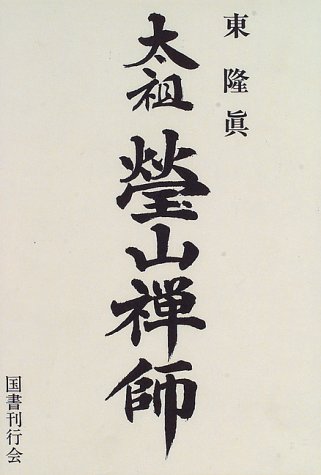 東隆眞
太祖瑩山禅師
国書刊行会